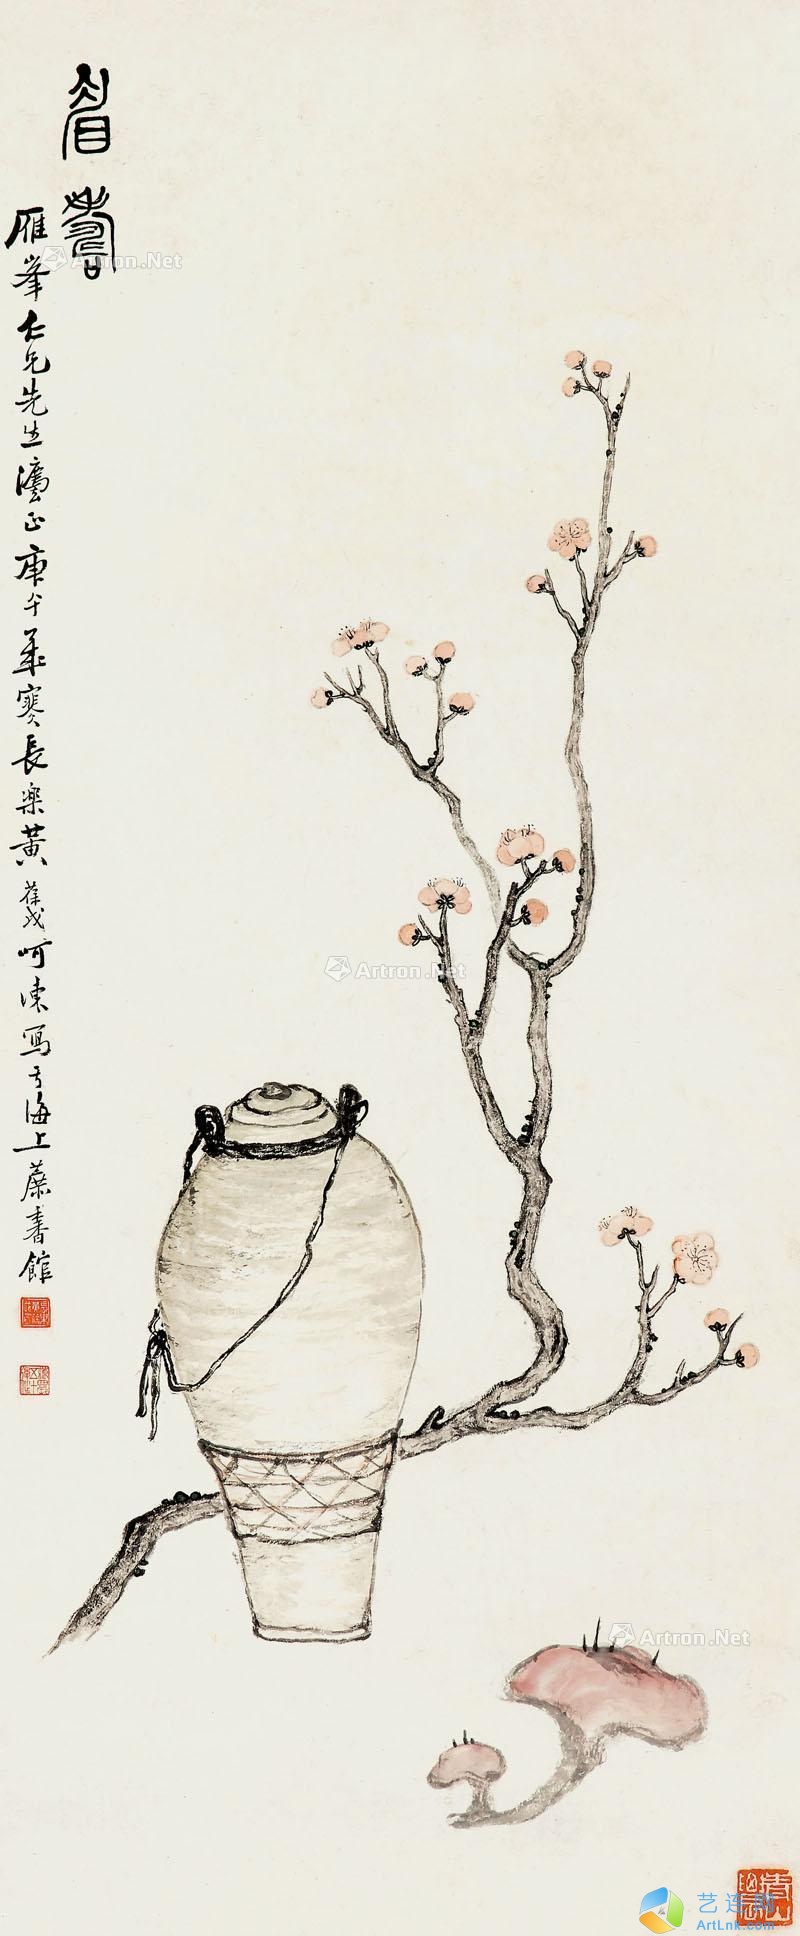 眉壽
雁峯仁兄先生灋正庚午羊寒長樂黃葆戉呵凍寫于海上蔗香館
Artron.Net
Artron.Net
Artron.Net
艺连网
ArtLnk.com